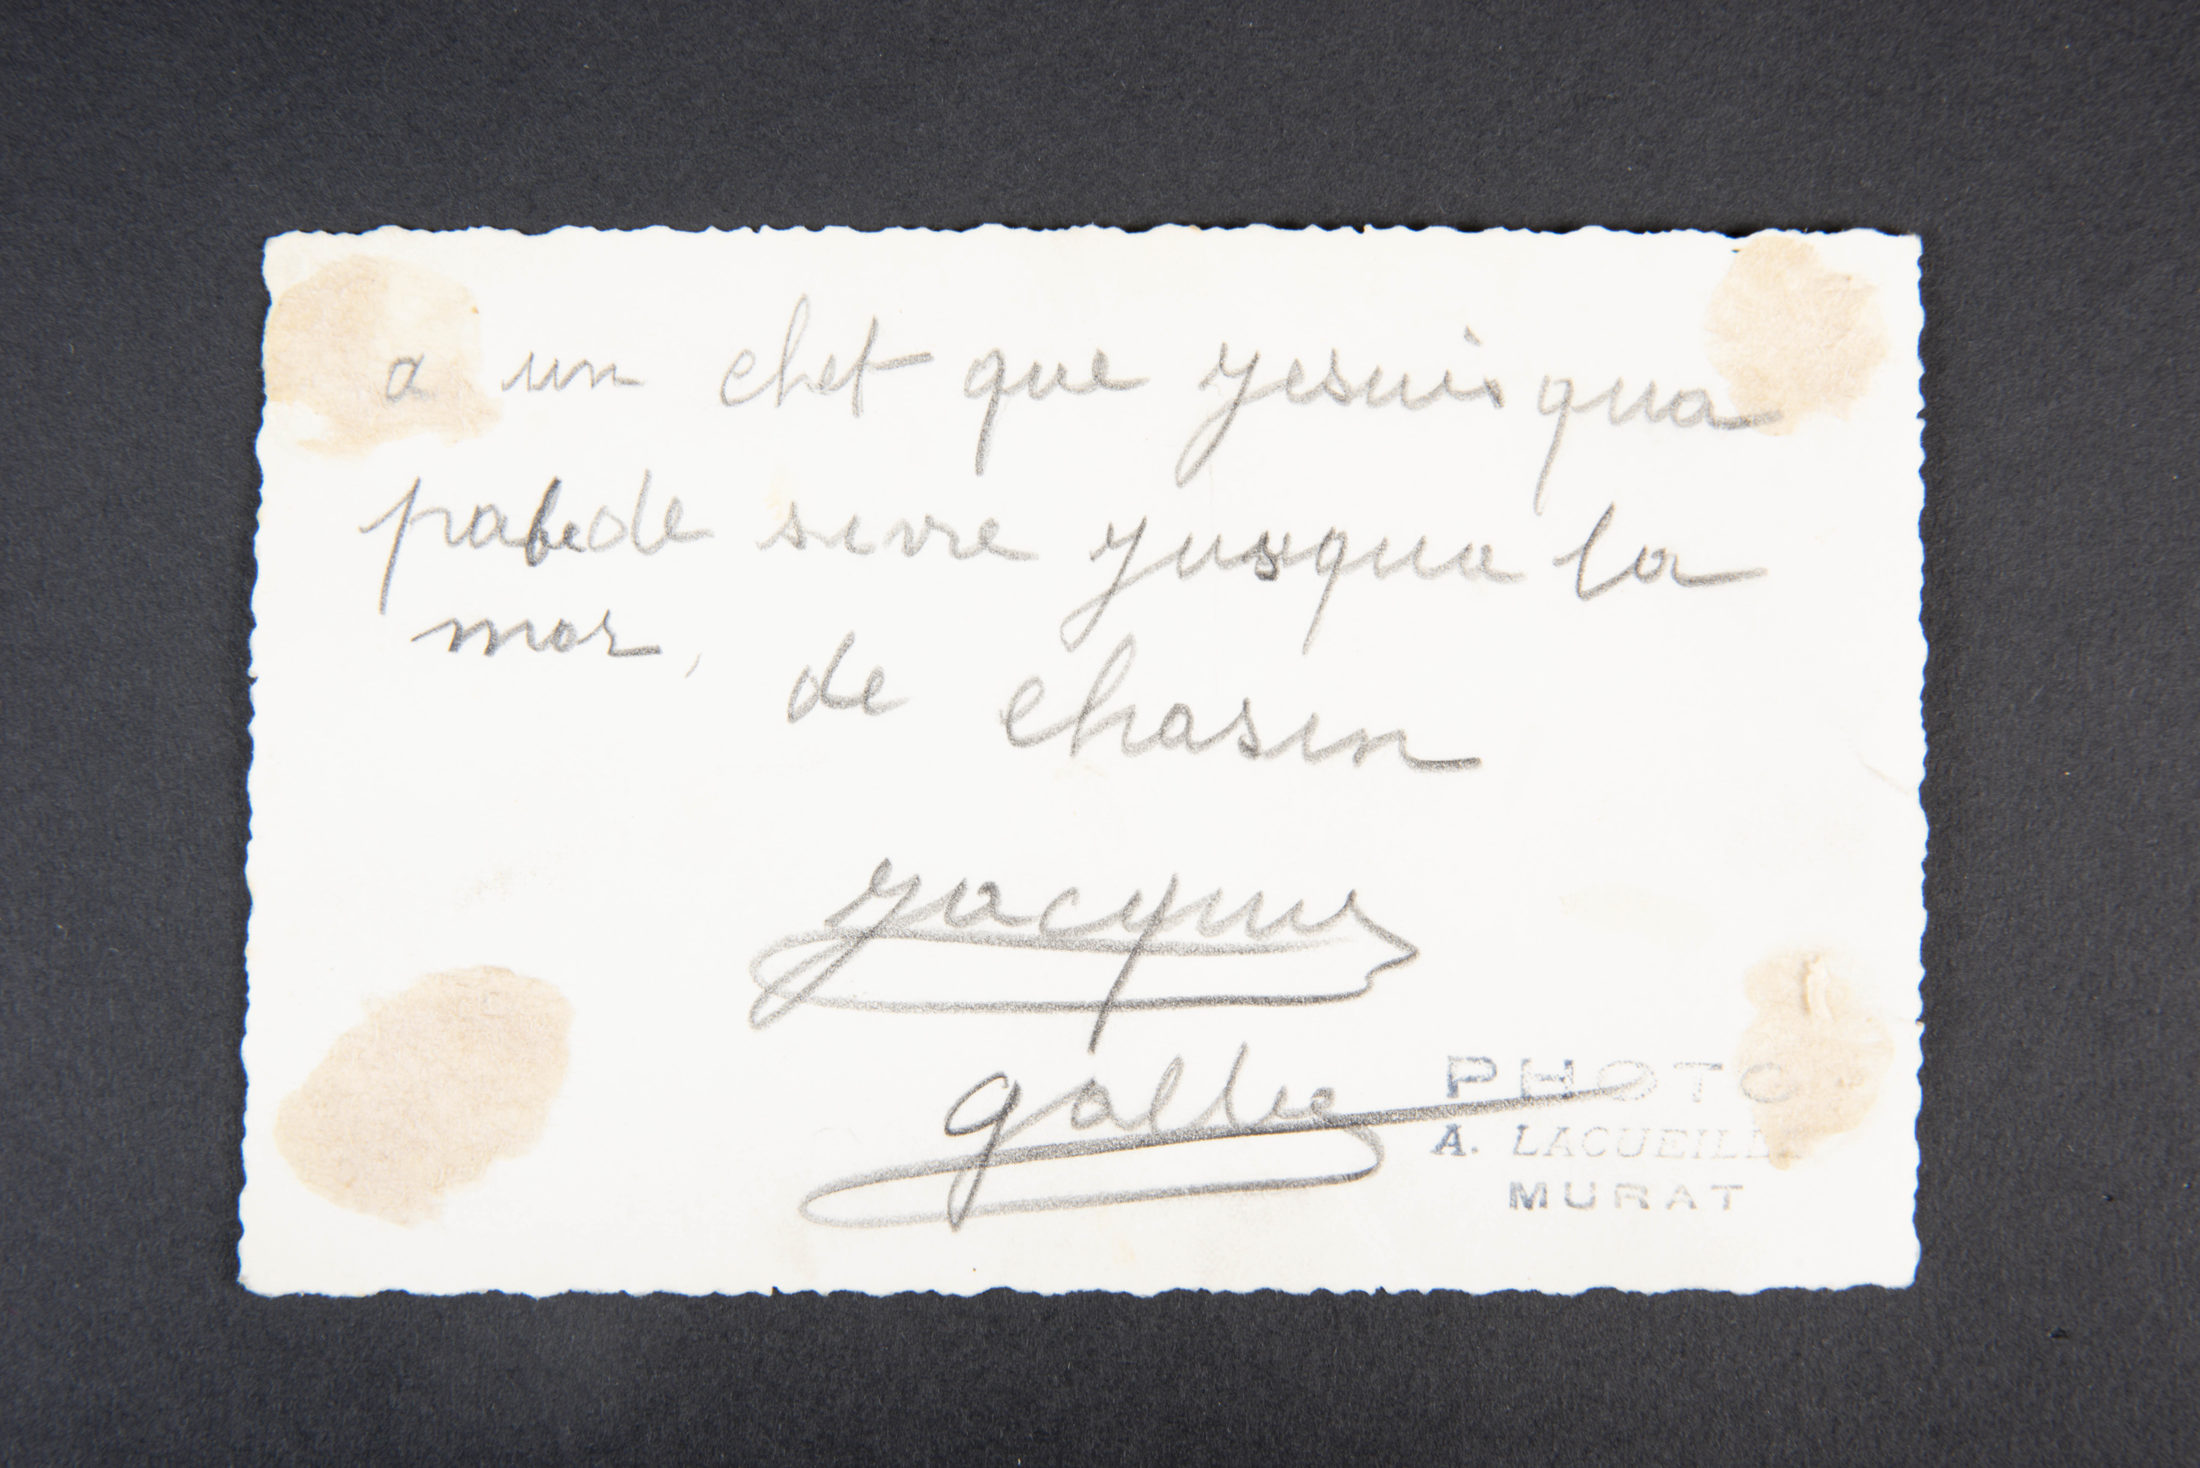 a un chef que yesuis qua
pabede sivre yusqua la
mor,
de chasin
yacques
PHOTO
A. LACUEILLE
MURAT